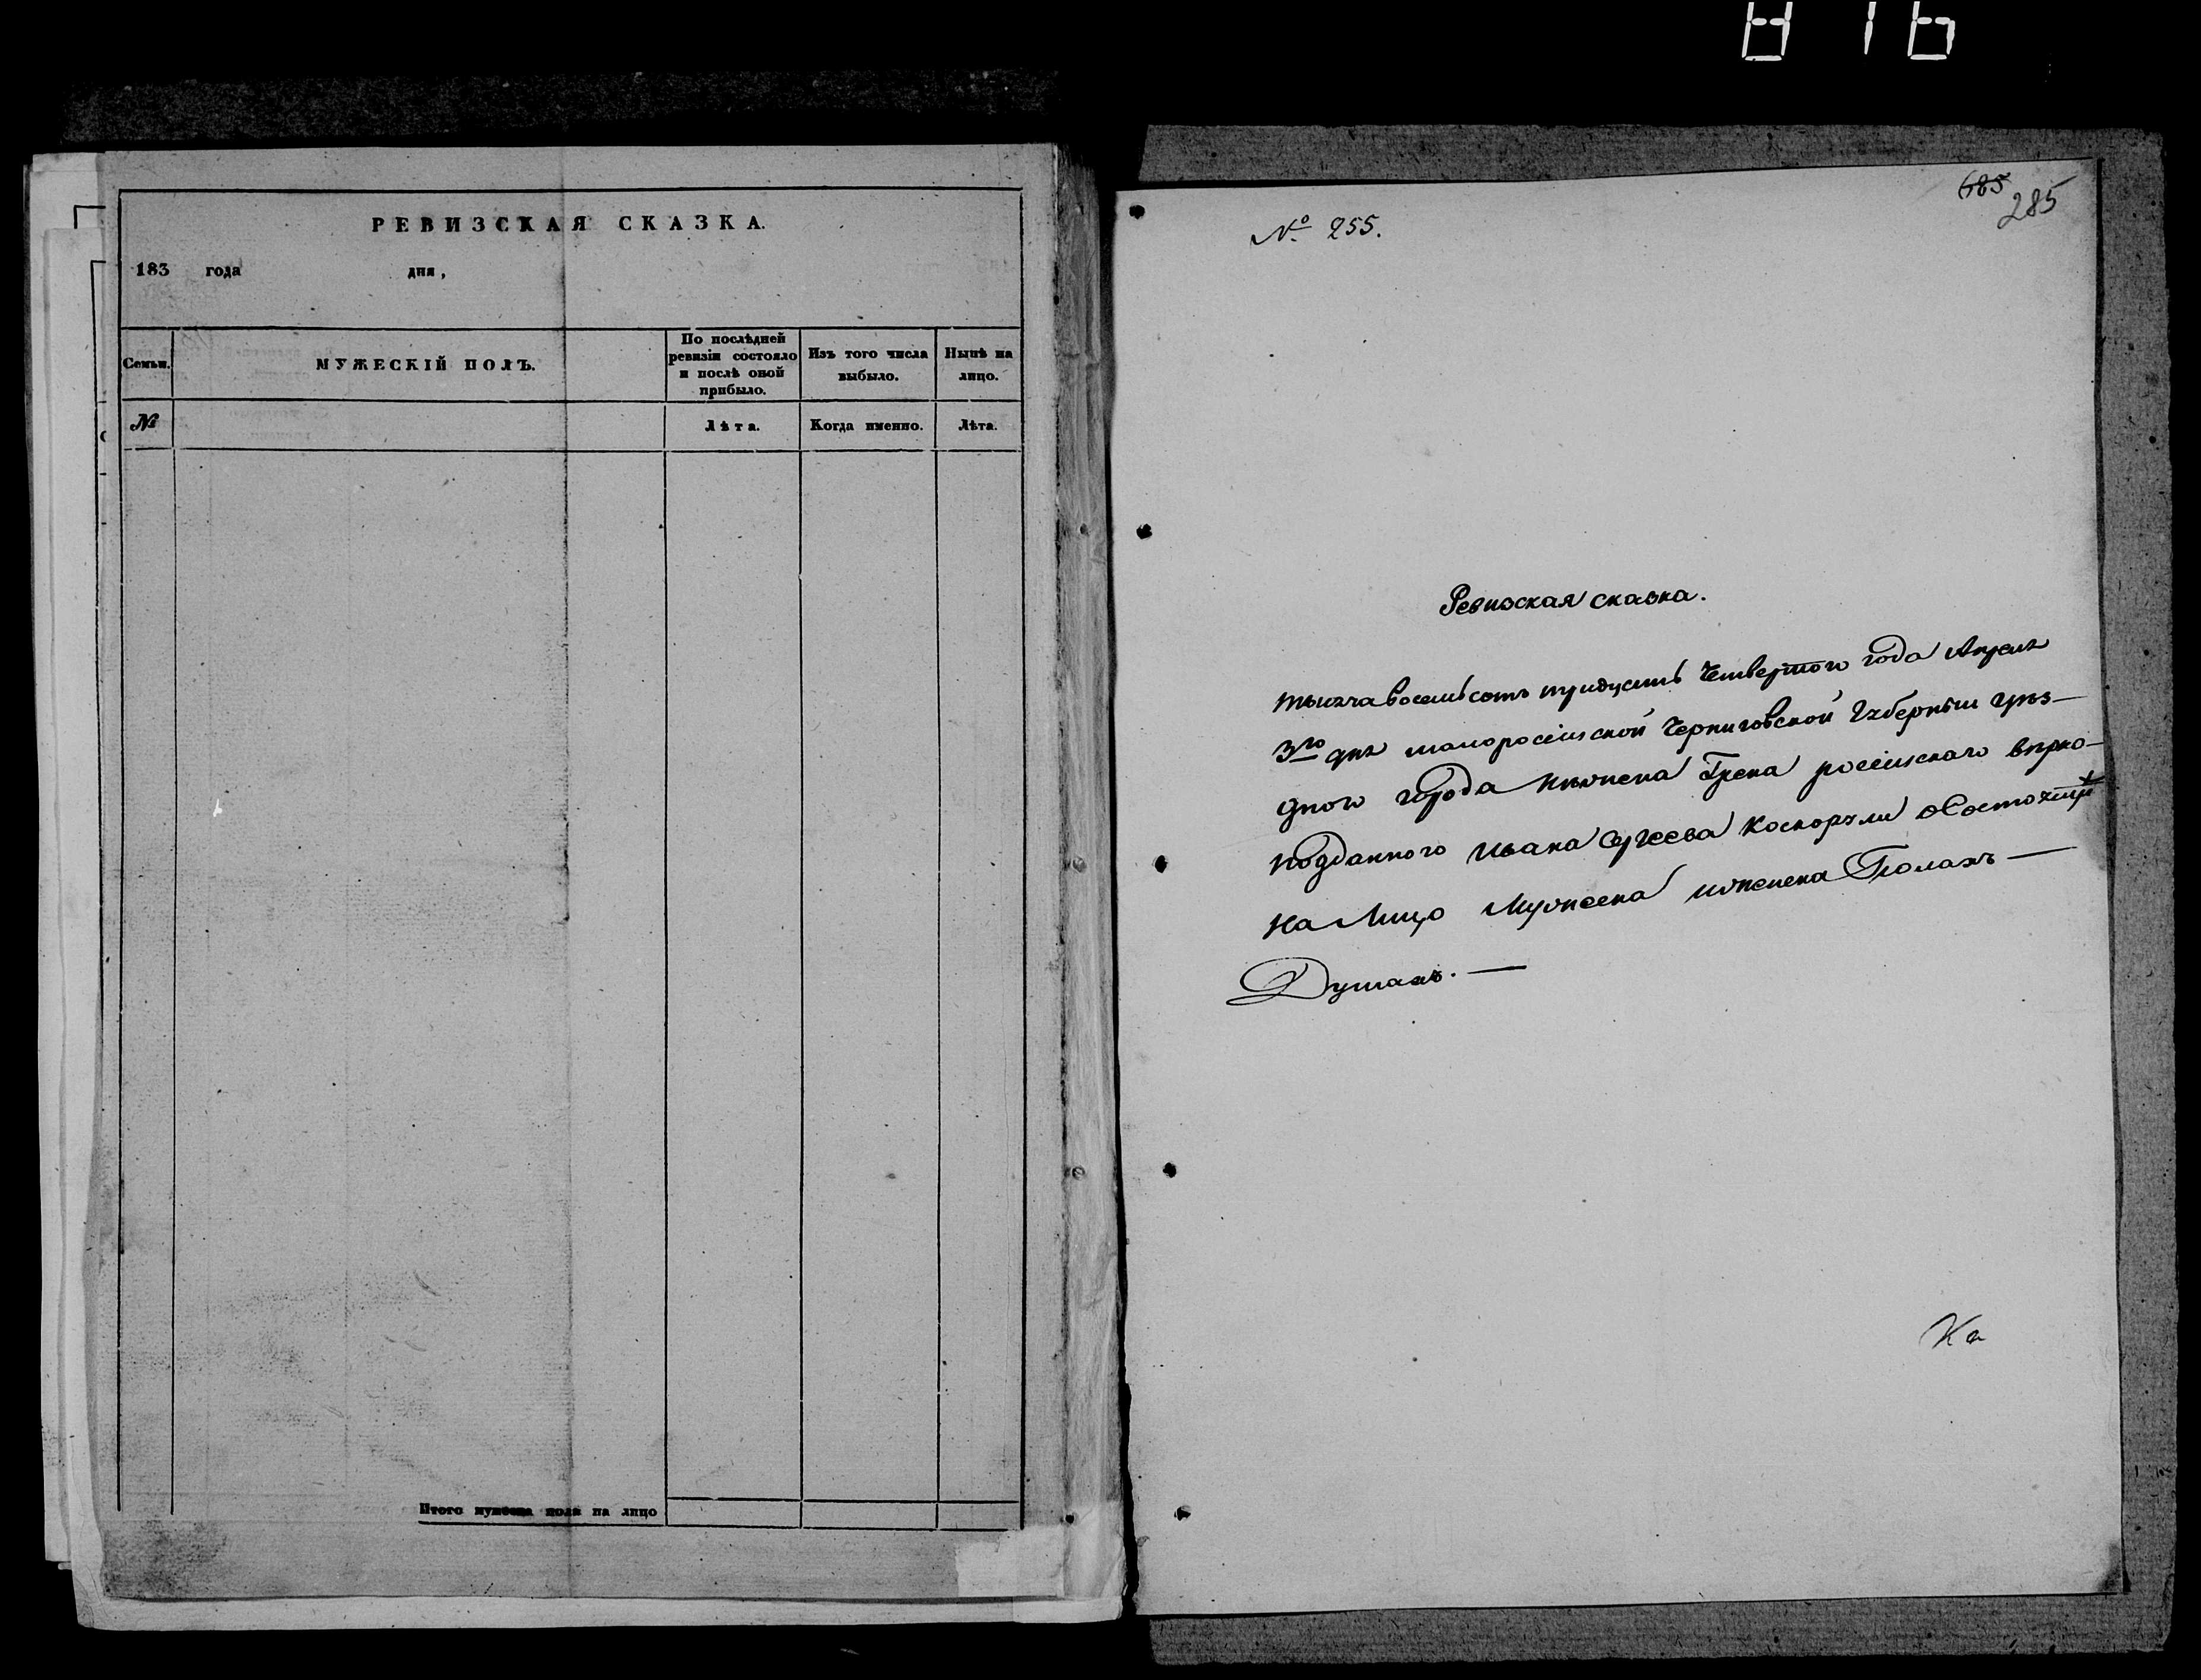 РЕВИЗСКАЯ СКАЗКА.
183 года дня,
Семьи.
МУЖЕСКІЙ ПОЛЪ.
По послѣдней
ревизіи состояло
и послѣ оной
прибыло.
Изъ того числа
выбыло.
Нынѣ на
лицо.
№
Лѣта.
Когда именно.
Лѣта.
Итого мужеска пола на лицо
685
285
№ 255.
Ревизская сказка.
тысяча восемьсотъ тридцать Четвертого года Апреля
3го дня малоросійской Черниговской Губерніи уѣз-
дного города Нѣжина Грека россійскаго вѣрно-
подданного Ивана Сергеева о Состоящихъ
На Лицо Мужеска и женска Полахъ
Душахъ.
Ка